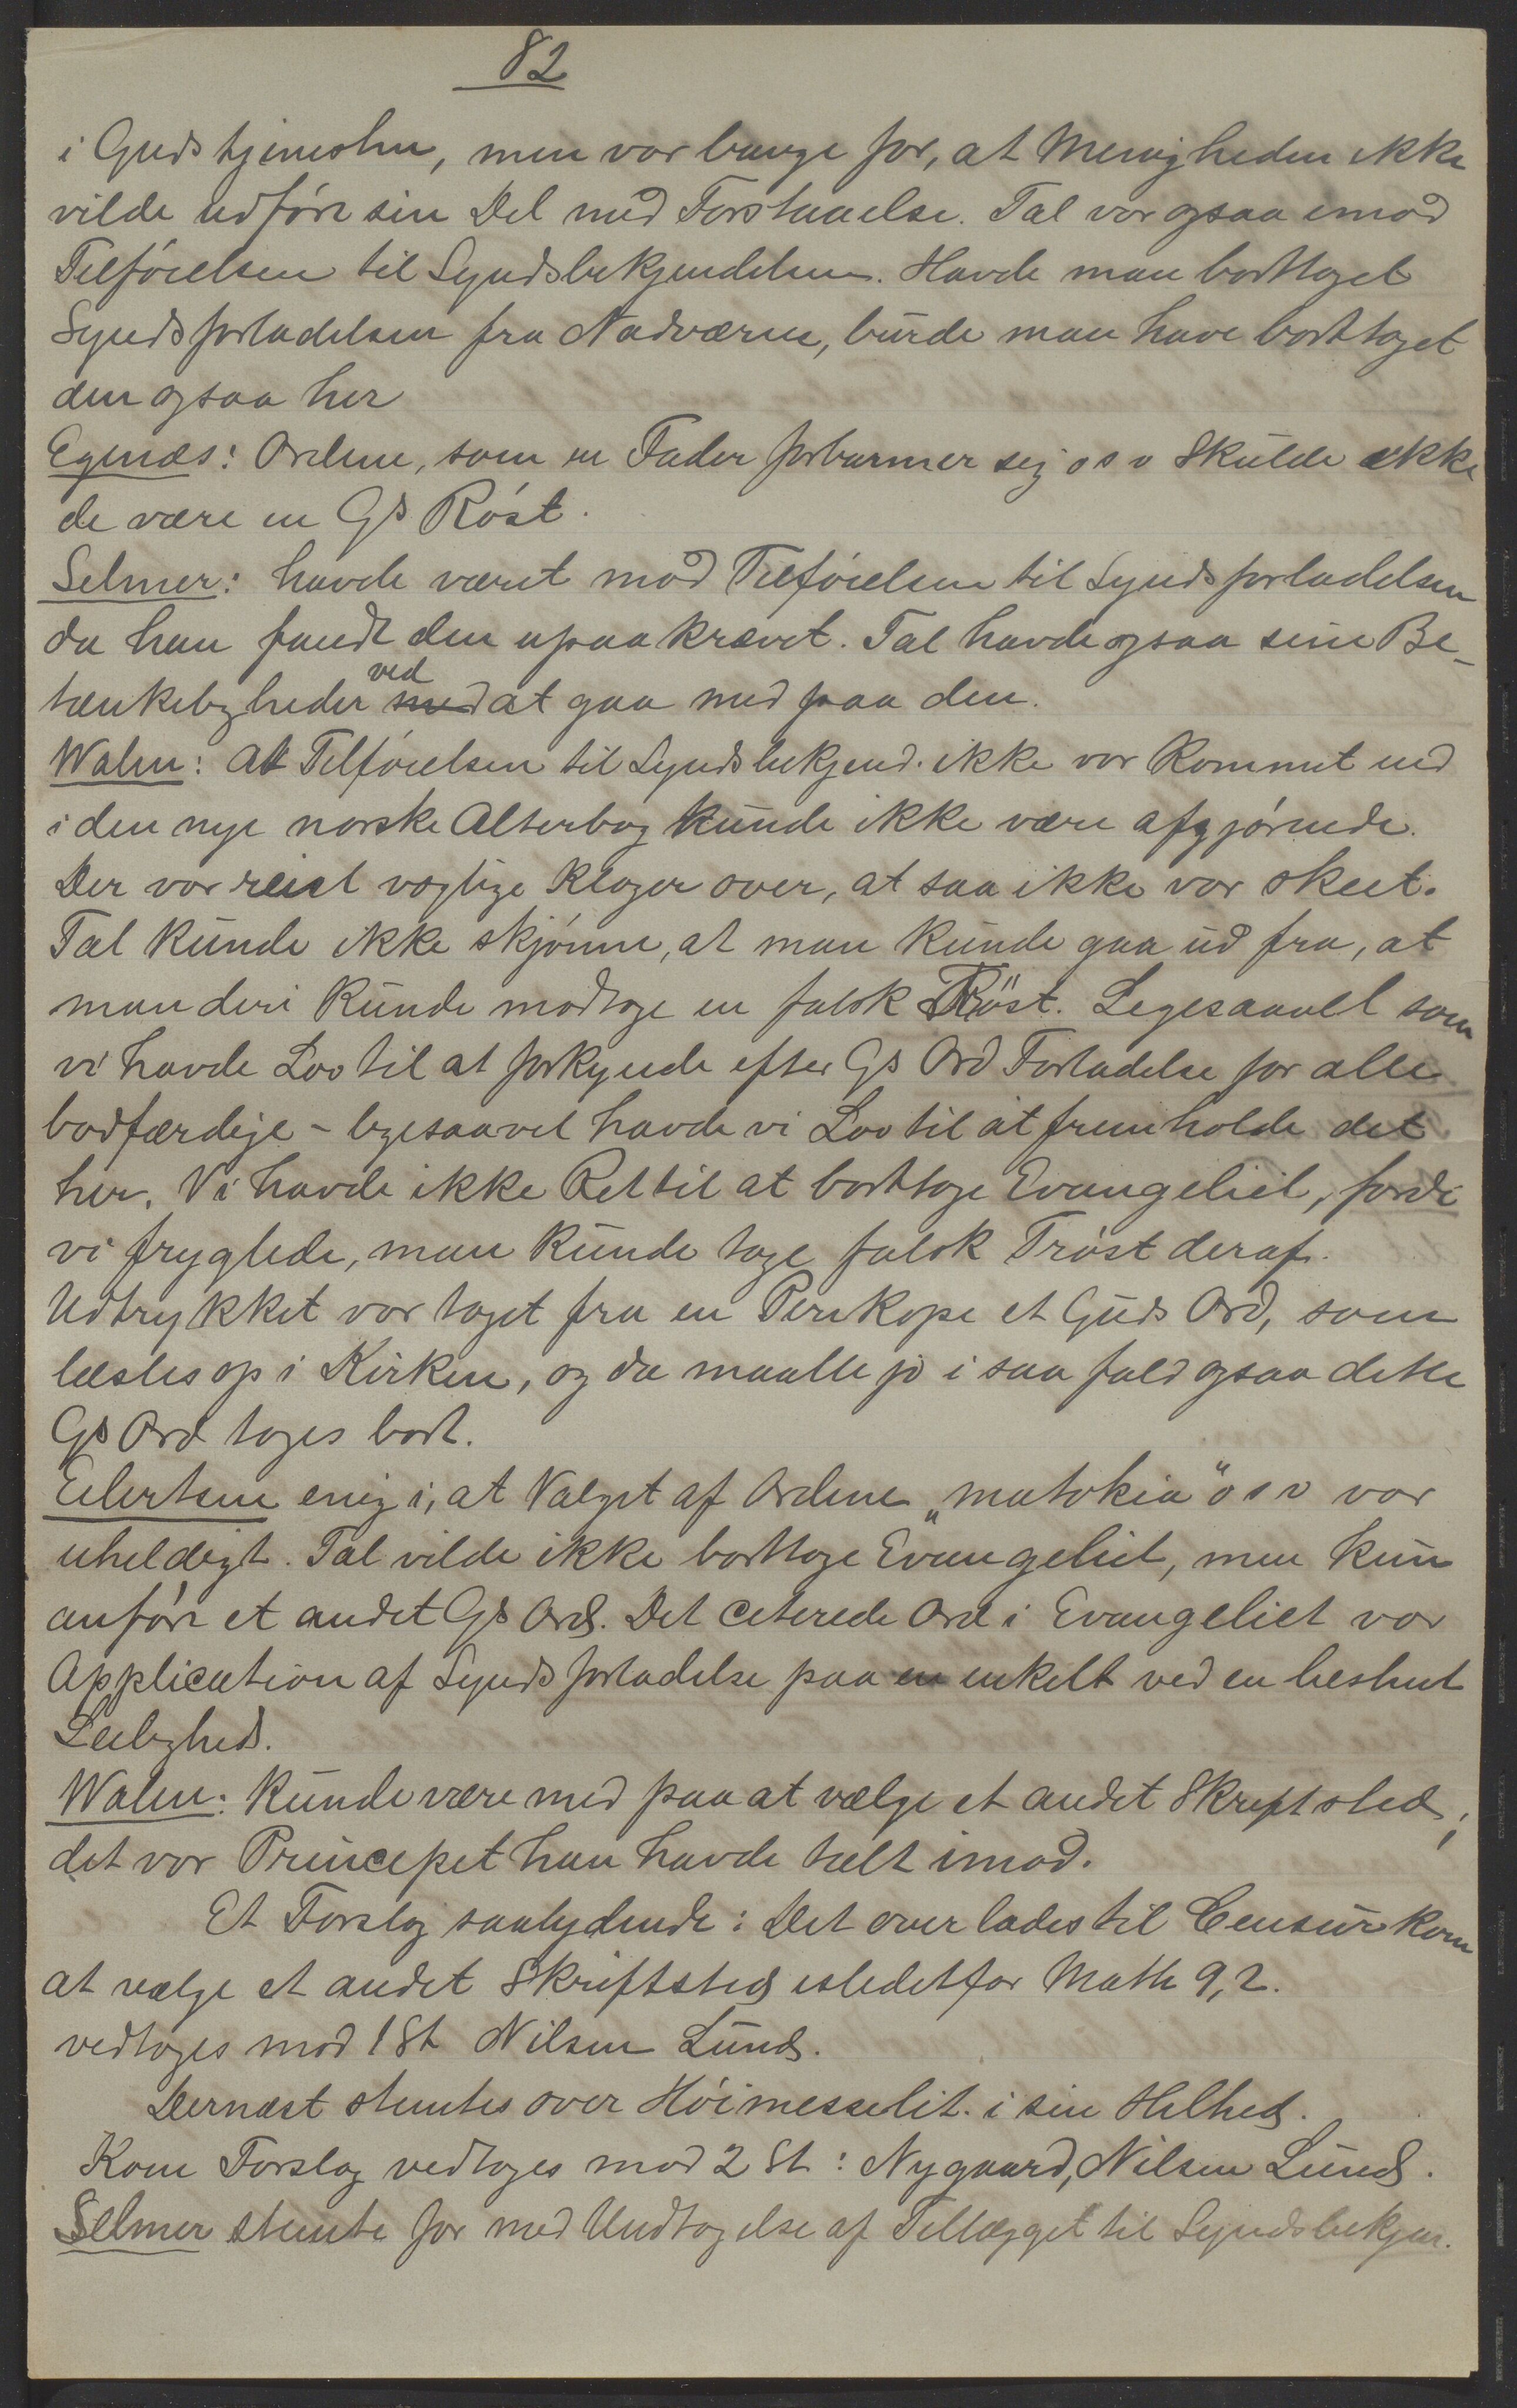 82
i Gudstjenesten, men var bange for, at Menigheden ikke
vilde udføre sin Del med Forstaaelse. Tal var ogsaa imod
Tilføielsen til Syndsbekjendelsen. Havde man borttaget
Syndsforladelsen fra Nadværen, burde man have borttaget
den ogsaa her
Egenæs: Ordene, som en Fader forbarmer sig o s v Skulde ikke
de være en Gs Røst.
Selmer: havde været mod Tilføielsen til Syndsforladelsen
da han fandt den upaakrævet. Tal havde ogsaa sine Be-
tænkeligheder ved at gaa med paa den.
Walen: At Tilføielsen til Syndsbekjend. ikke var kommet ind
i den nye norske Alterbog kunde ikke være afgjørende.
Der var reist vægtige Klager over, at saa ikke var skeet.
Tal kunde ikke skjønne, at man kunde gaa ud fra, at
man deri kunde modtage en falsk Trøst. Ligesaavel som
vi havde Lov til at forkynde efter Gs Ord Forladelse for alle
bodfærdige - ligesaavel havde vi Lov til at fremholde det
her. Vi havde ikke Ret til at borttage Evangeliet, fordi
vi frygtede, man kunde tage falsk Trøst deraf.
Udtrykket var taget fra en Perikope et Guds Ord, som
læstes op i Kirken, og da maatte jo i saa fald ogsaa dette
Gs Ord tages bort.
Eilertsen enig i, at Valget af Ordene "matokia" o s v var
uheldigt. Tal vilde ikke borttage Evangeliet, men kun
anføre et andet Gs Ord. Det citerede Ord i Evangeliet var
Application af Syndsforladelse paa en enkelt ved en bestemt
Leilighed.
Walen: kunde være med paa at vælge et andet Skriftsted;
det var Princepet han havde talt imod.
Et Forslag saalydende: Det overlades til Censurkom
at vælge et andet Skriftsted istedetfor Matth 9,2.
vedtoges mod 1 St Nilsen Lund.
Dernæst stemtes over Høimesselit. i sin Helhed.
Kom Forslag vedtoges mod 2 St: Nygaard, Nilsen Lund.
Selmer stemte for med Undtagelse af Tillægget til Syndsbekjen.